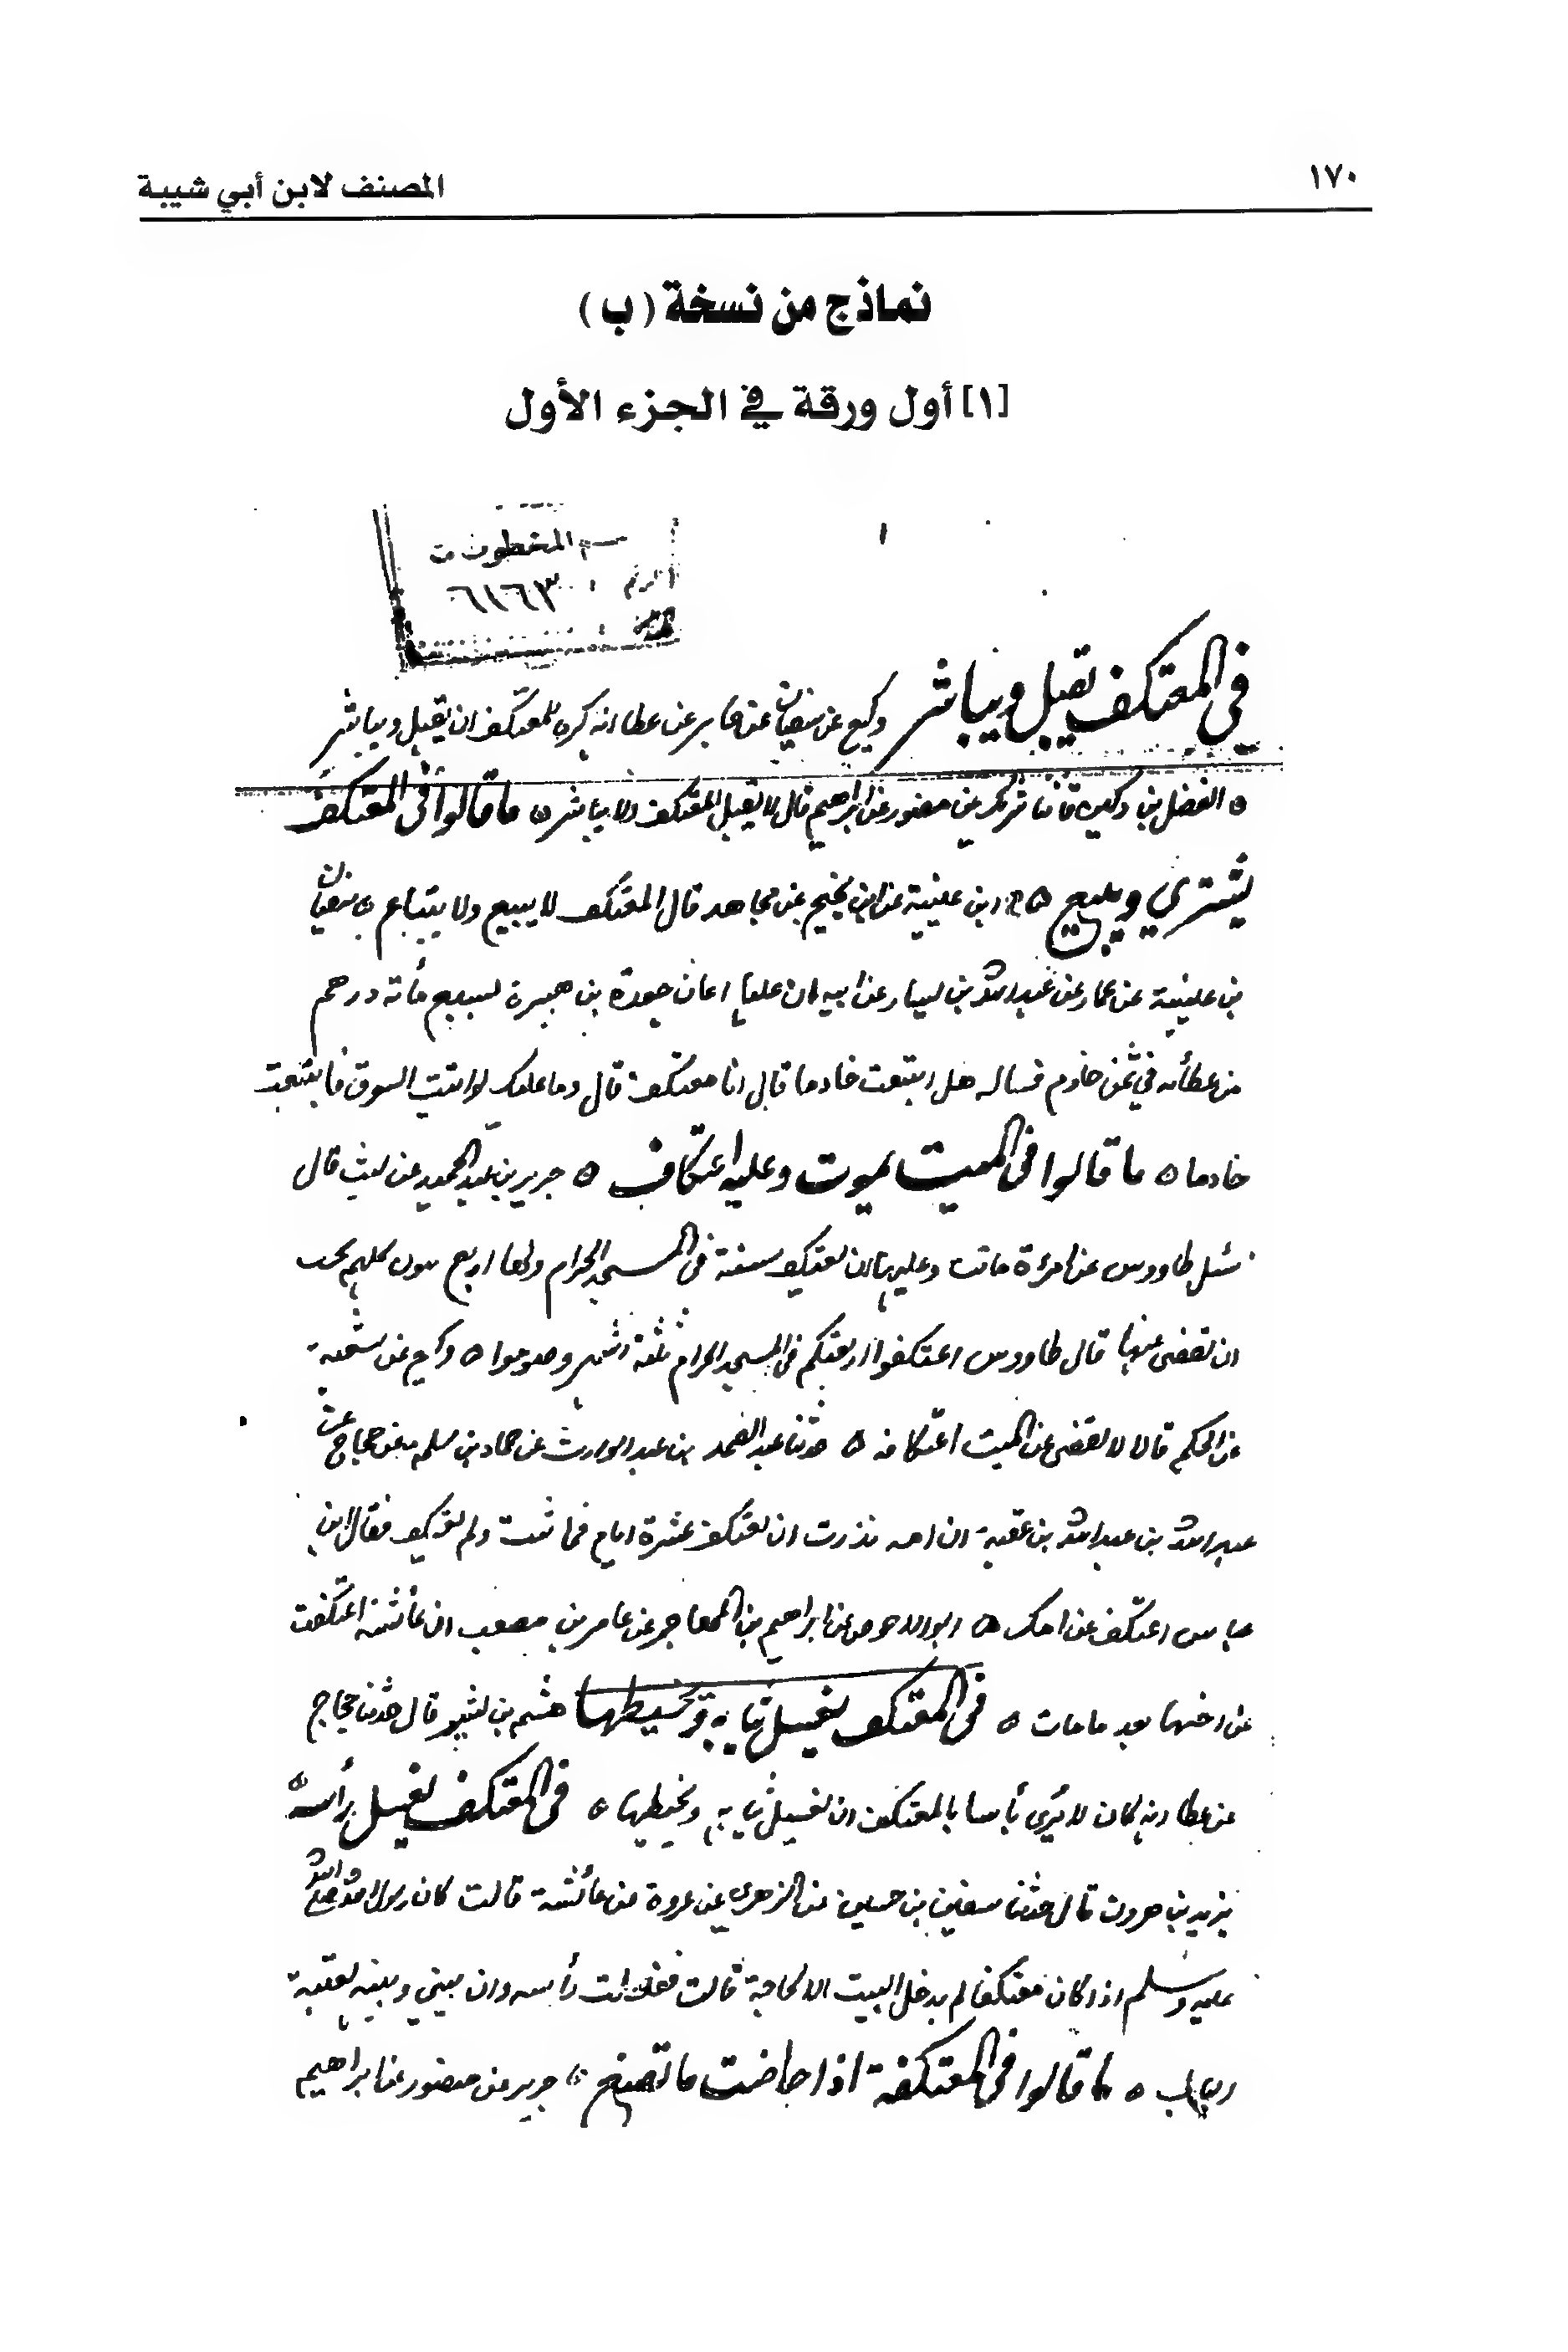 ١٧٠
المصنف لابن أبي شيبة
نماذج من نسخة (ب)
[١] أول ورقة في الجزء الأول
١
المخطوطات
الرقم ٦١٦٣
في المعتكف يقبل ويباشر وكيع عن سفيان عن جابر عن عطا انه كره للمعتكف ان يقبل ويباشر
ه الفضل بن دكين قال نا شريك عن منصور عن ابراهيم قال لا يقبل المعتكف ولا يباشر ه ما قالوا في المعتكف
يشتري ويبيع ه ابن عيينة عن ابن نجيح عن مجاهد قال المعتكف لا يبيع ولا يبتاع ه سفيان
بن عيينة عن عمار عن عبد الله بن يسار عن ابيه ان عليا اعان جعدة بن هبيرة بسبع مأة درهم
من عطائه في ثمن خادم فساله هل ابتعت خادما قال انا معتكف قال وما عليك لو اتيت السوق فابتعت
خادما ه ما قالوا في الميت يموت وعليه اعتكاف ه جرير بن عبد الحميد عن ليث قال
سئل طاووس عن امرءة ماتت وعليها ان تعتكف سنة في المسجد الحرام ولها اربع بنون كلهم يحب
ان تقضي عنها قال طاووس اعتكفوا اربعتكم في المسجد الحرام ثلثة اشهر وصوموا ه وكيع عن شعبة
عن الحكم قال لا يقضى عن الميت اعتكافه ه حدثنا عبد الصمد بن عبد الوارث عن حماد بن سلمه عن حجاج عن
عبد الله بن عبد الله بن عقبة ان امه نذرت ان تعتكف عشرة ايام فماتت ولم تعتكف فقال ابن
عباس اعتكف عن امك ه ابو الاحوص عن ابراهيم بن المهاجر عن عامر بن مصعب ان عائشة اعتكفت
عن اخيها بعد ما مات ه في المعتكف يغسل ثيابه ويخيطها هشيم بن بشير قال حدثنا حجاج
عن عطا انه كان لا يرى بأسا بالمعتكف ان يغسل ثيابه ويخيطها ه في المعتكف يغسل رأسه ه
يزيد بن هرون قال حدثنا سفين بن حسين عن الزهري عن عروة عن عائشة قالت كان رسول الله صلى الله
عليه وسلم اذا كان معتكفا لم يدخل البيت الا لحاجة قالت فغسلت رأسه وان بيني وبينه لعتبة
الباب ه ما قالوا في المعتكفة اذا حاضت ما تصنع ه جرير عن منصور عن ابراهيم